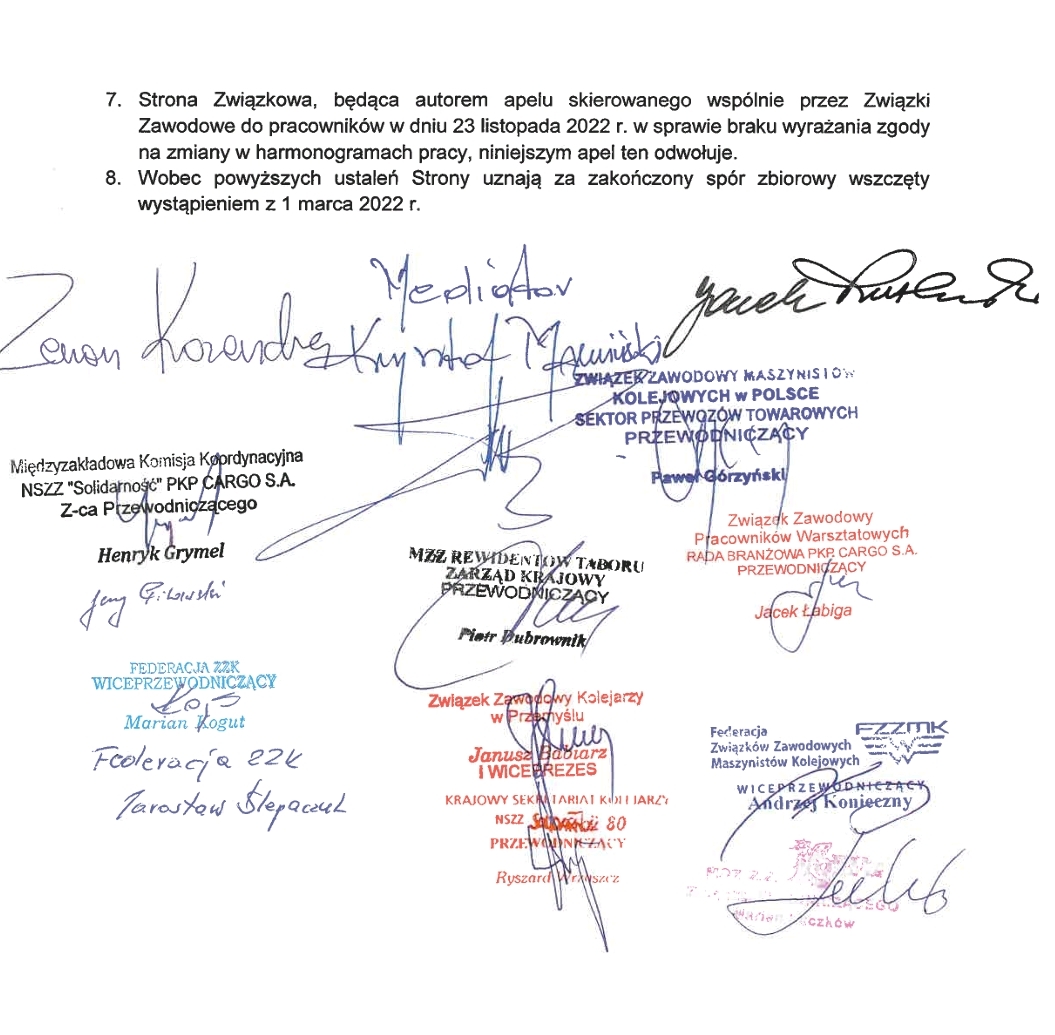 7. Strona Związkowa, będąca autorem apelu skierowanego wspólnie przez Związki
Zawodowe do pracowników w dniu 23 listopada 2022 r. w sprawie braku wyrażania zgody
na zmiany w harmonogramach pracy, niniejszym apel ten odwołuje.
8. Wobec powyższych ustaleń Strony uznają za zakończony spór zbiorowy wszczęty
wystąpieniem z 1 marca 2022 r.
Mediator
Zenon Kozendra
Jacek
ZWIĄZEK ZAWODOWY MASZYNISTÓW
KOLEJOWYCH w POLSCE
SEKTOR PRZEWOZÓW TOWAROWYCH
PRZEWODNICZĄCY
Paweł Górzyński
Międzyzakładowa Komisja Koordynacyjna
NSZZ "Solidarność" PKP CARGO S.A.
Z-ca Przewodniczącego
Henryk Grymel
Związek Zawodowy
Pracowników Warsztatowych
RADA BRANŻOWA PKP CARGO S.A.
PRZEWODNICZĄCY
Jacek Łabiga
MZZ REWIDENTÓW TABORU
ZARZĄD KRAJOWY
PRZEWODNICZĄCY
Piotr Dubrownik
FEDERACJA ZZK
WICEPRZEWODNICZĄCY
Marian Kogut
Federacja ZZK
Jarosław Ślepaczuk
Związek Zawodowy Kolejarzy
w Przemyślu
Janusz Babiarz
I WICEPREZES
KRAJOWY SEKRETARIAT KOLEJARZY
NSZZ 80
PRZEWODNICZĄCY
Ryszard
FZZMK
Federacja
Związków Zawodowych
Maszynistów Kolejowych
WICEPRZEWODNICZĄCY
Andrzej Konieczny